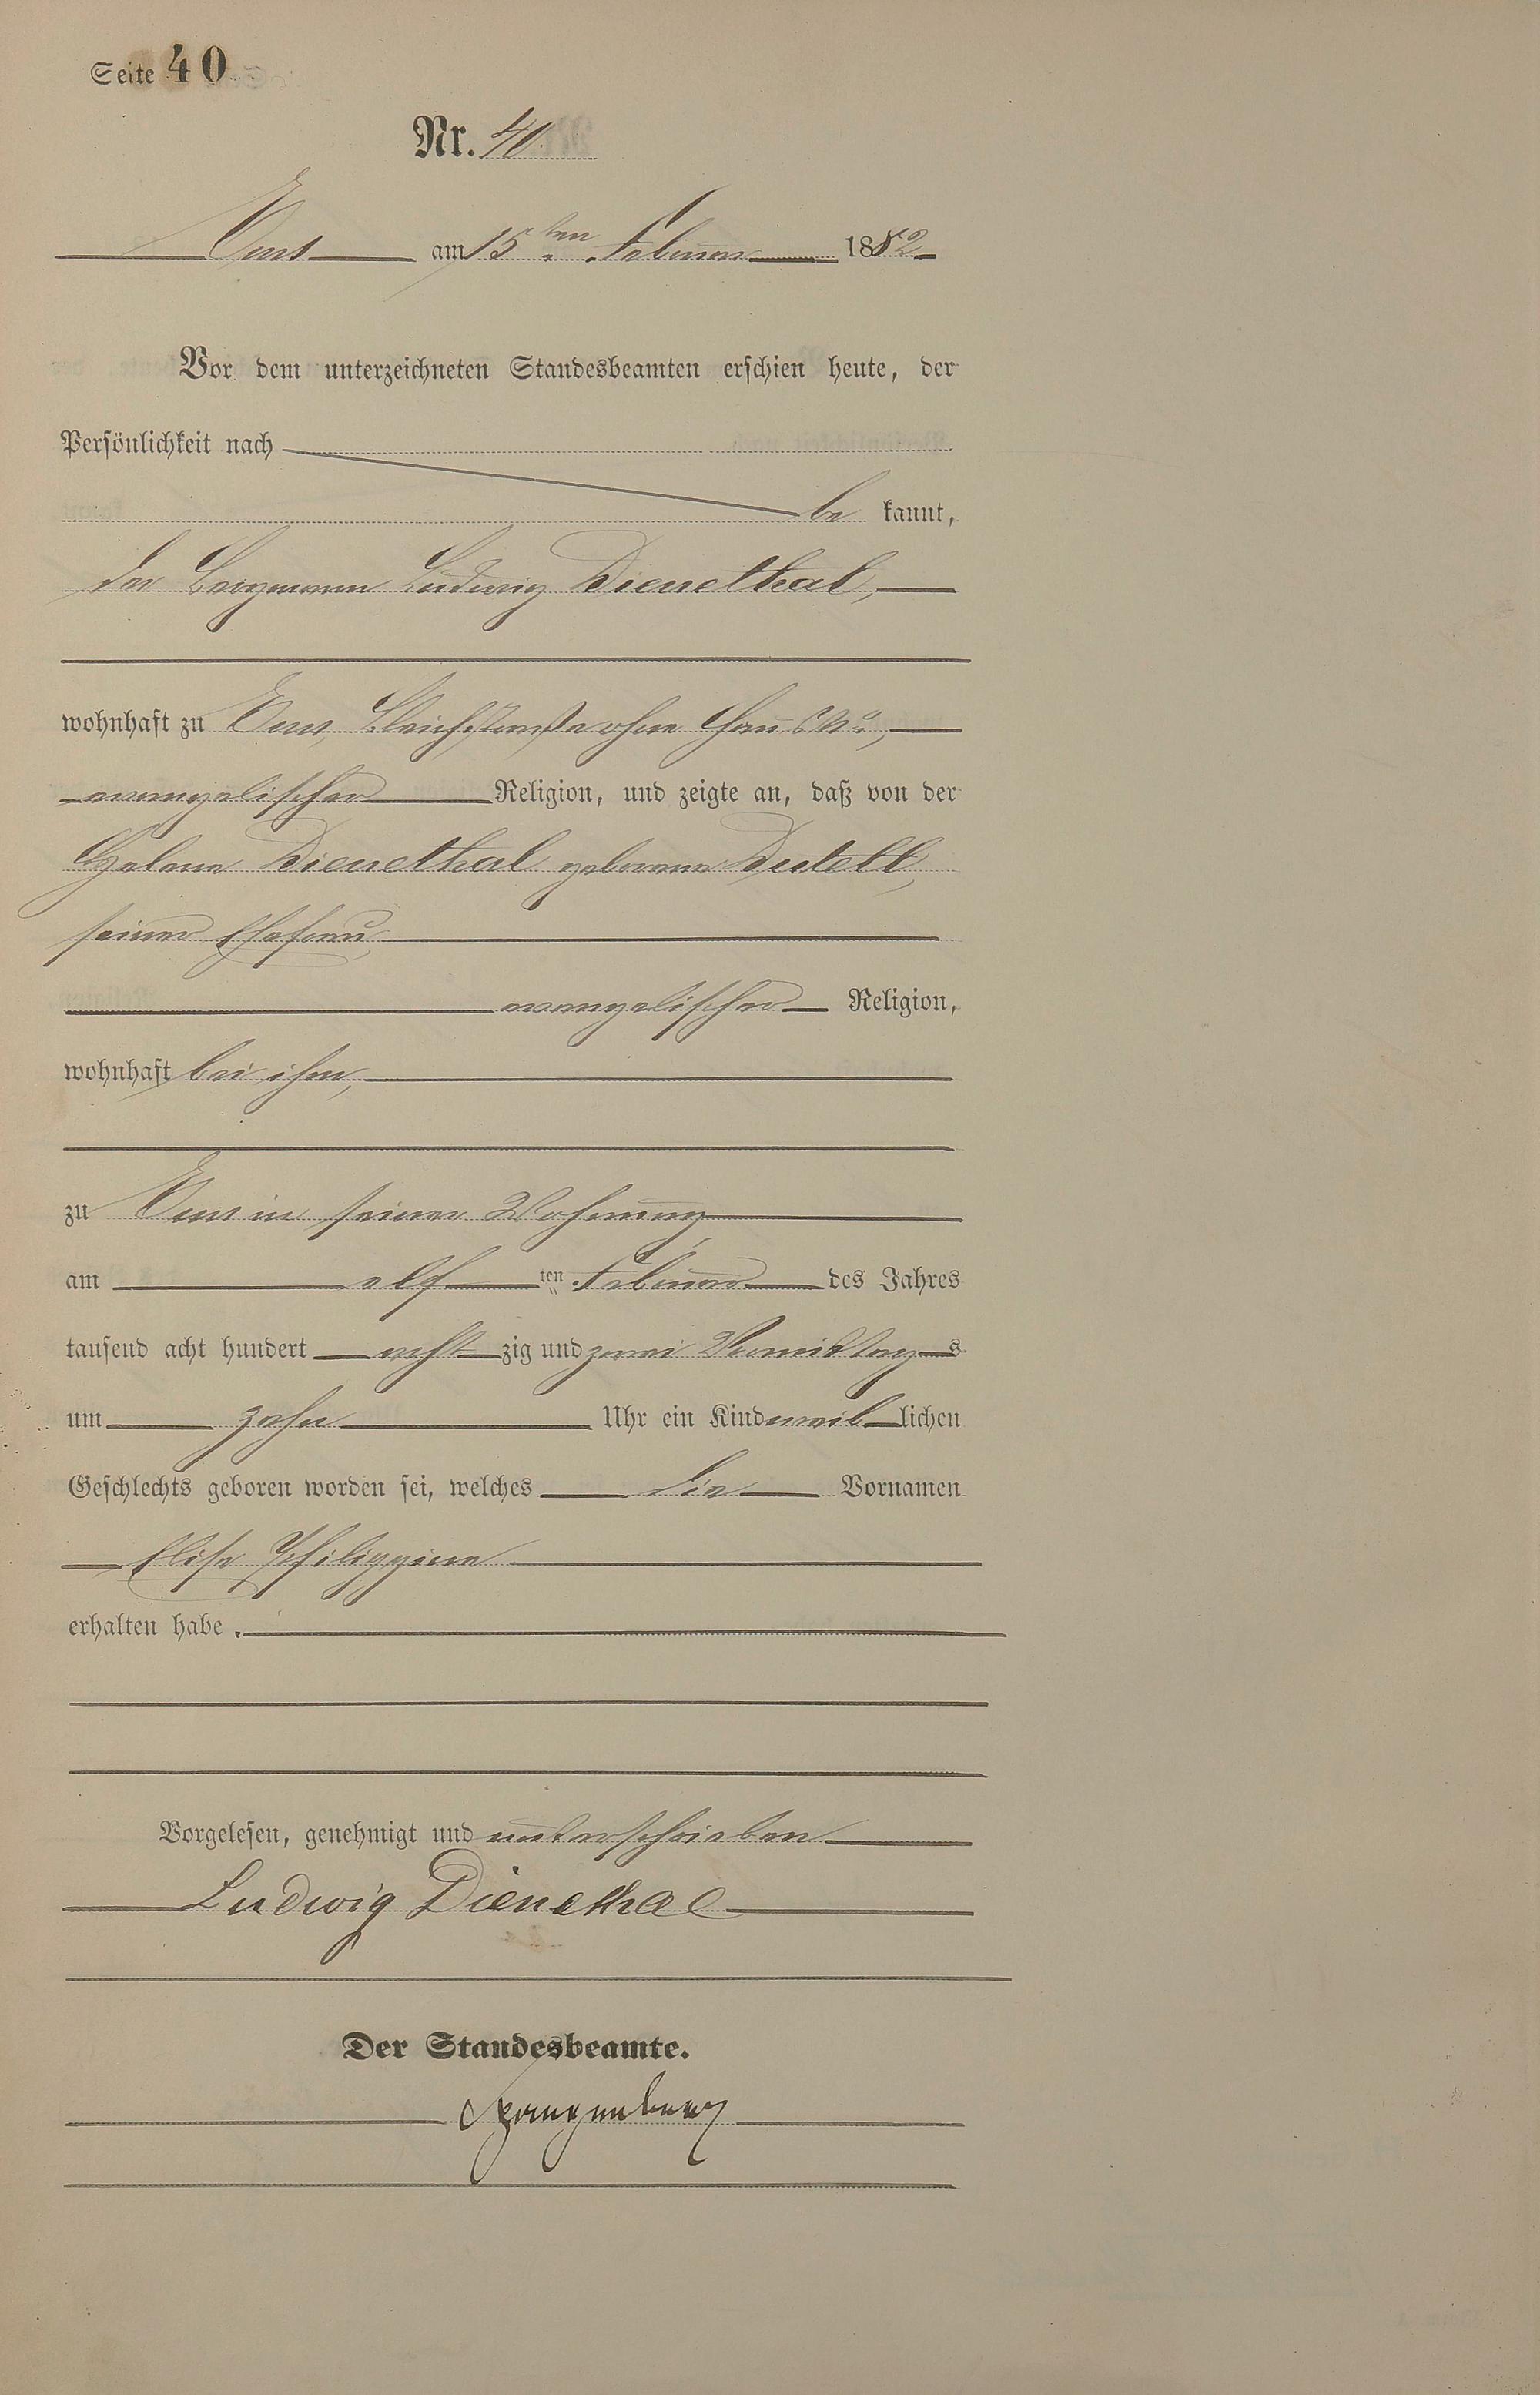 Seite 40
Nr. 40.
Ems am 15ten Februar 1882
Vor dem unterzeichneten Standesbeamten erschien heute, der
Persönlichkeit nach
be kannt,
der Bergmann Ludwig Dienethal,
wohnhaft zu Ems, Bleichstraße ohne Haus No,
evangelischer Religion, und zeigte an, daß von der
Helene Dienethal geborene
seiner Ehefrau,
evangelischer Religion,
wohnhaft bei ihm,
zu Ems in seiner Wohnung
am elf ten Februar des Jahres
tausend acht hundert acht zig und zwei Vormittags
um zehn Uhr ein Kind weib lichen
Geschlechts geboren worden sei, welches die Vornamen
Elise Philippine
erhalten habe.
Vorgelesen, genehmigt und unterschrieben
Ludwig Dienethal
Der Standesbeamte.
Spangenberg